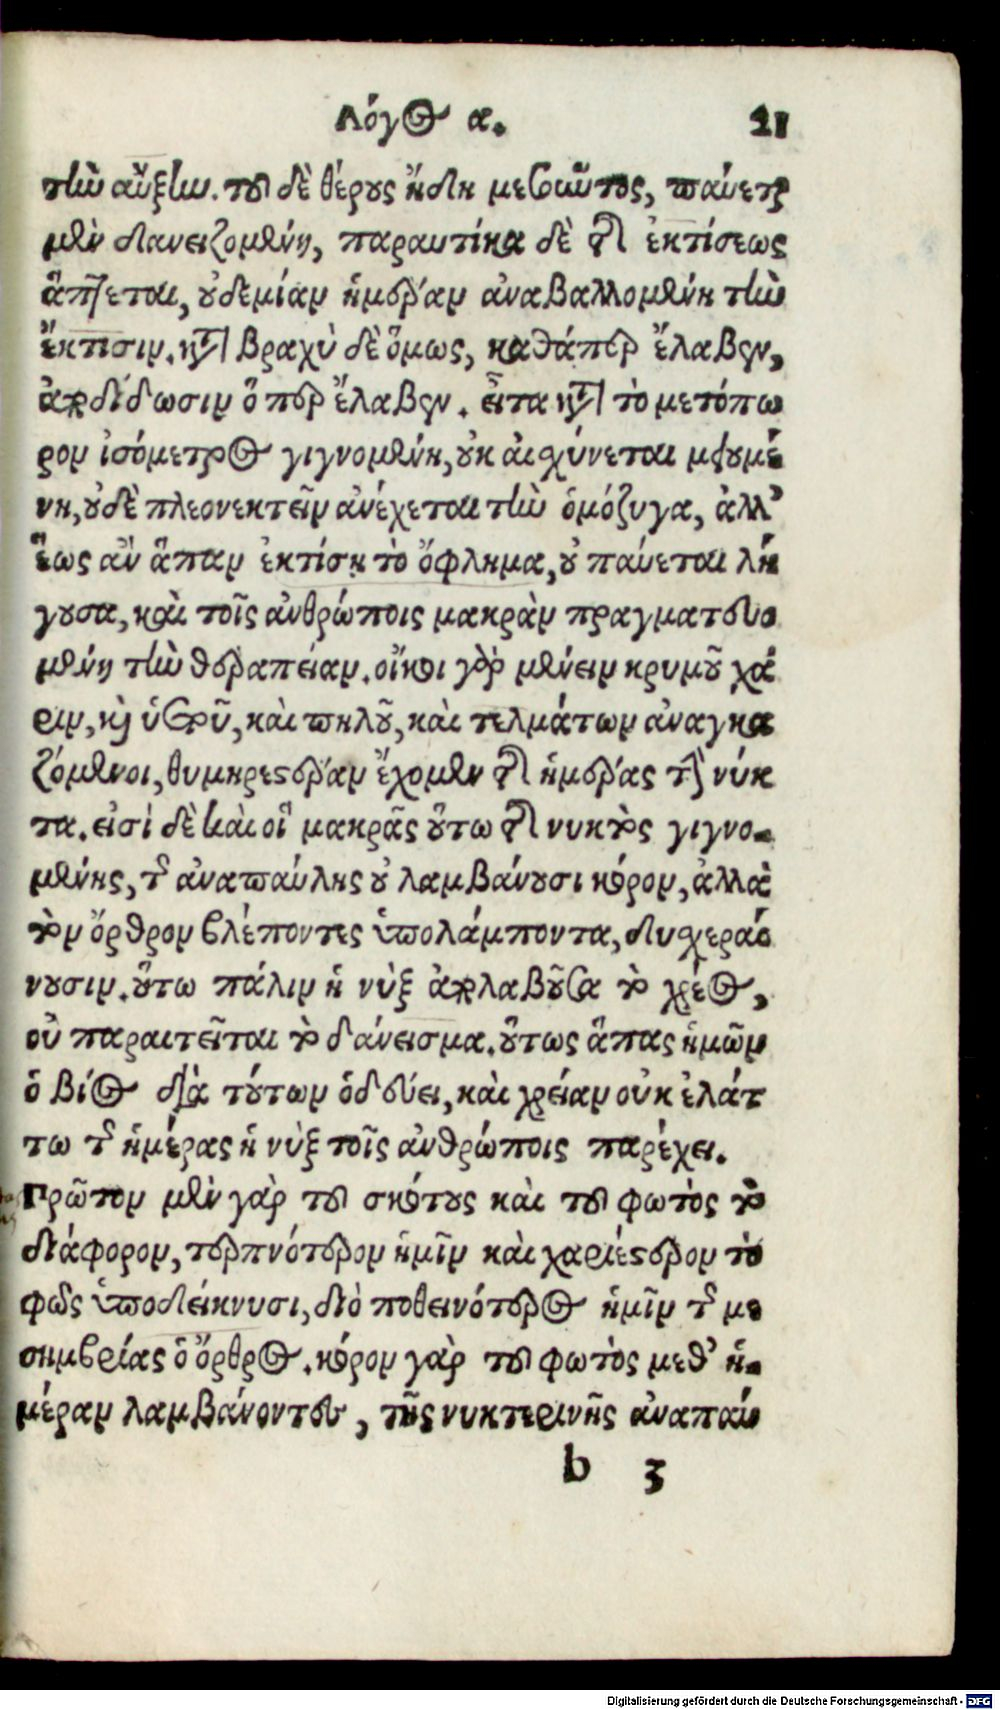 Λόγος α. 21
τὴν αὔξην. τοῦ δὲ θέρους ἤδη μεσοῦντος, παύεται
μὲν δανειζομένη, παραυτίκα δὲ τῆς ἐκτίσεως
ἅπτεται, οὐδεμίαν ἡμέραν ἀναβαλλομένη τὴν
ἔκτισιν. κατὰ βραχὺ δὲ ὅμως, καθάπερ ἔλαβεν,
ἀποδίδωσιν ὅπερ ἔλαβεν. εἶτα κατὰ τὸ μετόπω
ρον ἰσόμετρος γιγνομένη, οὐκ αἰσχύνεται μειουμέ
νη, οὐδὲ πλεονεκτεῖν ἀνέχεται τὴν ὁμόζυγα, ἀλλ’
ἕως ἂν ἅπαν ἐκτίσῃ τὸ ὄφλημα, οὐ παύεται λή
γουσα, καὶ τοῖς ἀνθρώποις μακρὰν πραγματευο
μένη τὴν θεραπείαν. οἴκοι γὰρ μένειν κρυμοῦ χά
ριν, καὶ ὑετοῦ, καὶ πηλοῦ, καὶ τελμάτων ἀναγκα
ζόμενοι, θυμηρεστέραν ἔχομεν τῆς ἡμέρας τὴν νύκ
τα. εἰσὶ δὲ καὶ οἳ μακρᾶς οὕτω τῆς νυκτὸς γιγνο-
μένης, τῆς ἀναπαύλης οὐ λαμβάνουσι κόρον, ἀλλὰ
τὸν ὄρθρον βλέποντες ὑπολάμποντα, δυσχεραί
νουσιν. οὕτω πάλιν ἡ νὺξ ἀπολαβοῦσα τὸ χρέος,
οὐ παραιτεῖται τὸ δάνεισμα. οὕτως ἅπας ἡμῶν
ὁ βίος διὰ τούτων ὁδεύει, καὶ χρείαν οὐκ ἐλάτ
τω τῆς ἡμέρας ἡ νὺξ τοῖς ἀνθρώποις παρέχει.
Πρῶτον μὲν γὰρ τοῦ σκότους καὶ τοῦ φωτὸς τὸ
διάφορον, τερπνότερον ἡμῖν καὶ χαριέστερον τὸ
φῶς ὑποδείκνυσι, διὸ ποθεινότερος ἡμῖν τῆς με
σημβρίας ὁ ὄρθρος. κόρον γὰρ τοῦ φωτὸς μεθ’ ἡ-
μέραν λαμβάνοντες, τῆς νυκτερινῆς ἀναπαύ
b 3
Digitalisierung gefördert durch die Deutsche Forschungsgemeinschaft - DFG